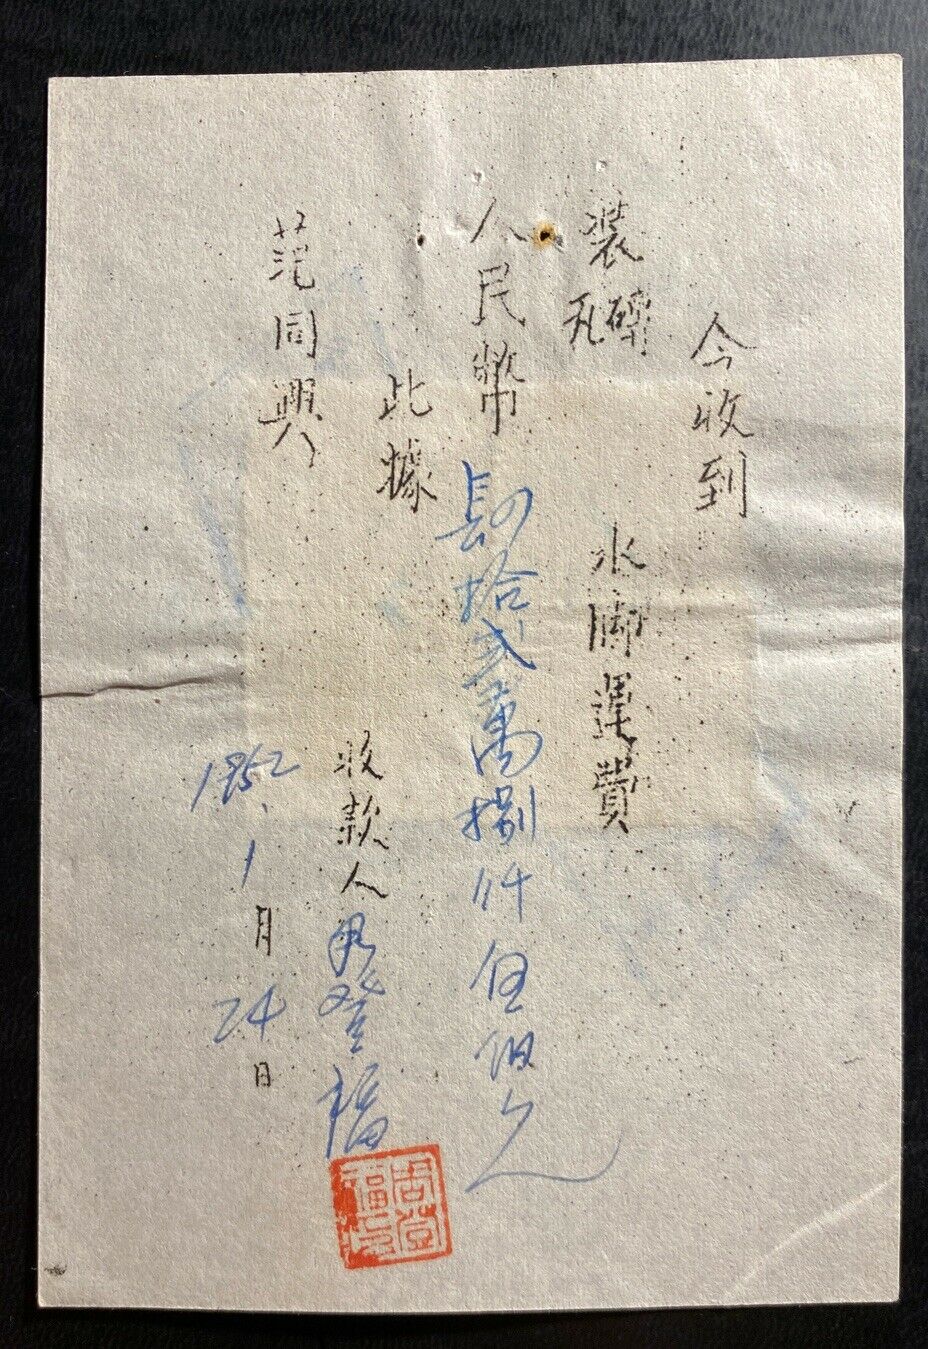 今收到
裝磚瓦 水脚運費
人民幣肆拾弍萬捌仟伍佰元
此據
范同興
收款人周登福
1952.1月24日
周登福印